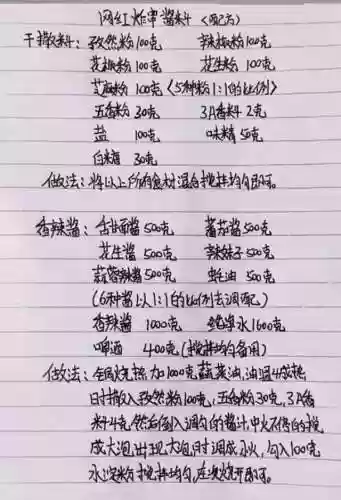 网红炸串酱料（配方）
干撒料：孜然粉100克 辣椒粉100克
花椒粉100克 花生粉100克
芝麻粉100克（5种粉1:1的比例）
五香粉30克 3A香料2克
盐 100克 味精50克
白糖 30克
做法：将以上所有食材混合搅拌均匀即可。
香辣酱：甜面酱500克 蕃茄酱500克
花生酱500克 辣妹子500克
蒜蓉辣酱500克 蚝油500克
（6种酱以1:1的比例去调配）
香辣酱 1000克 纯净水1600克
啤酒 400克（搅拌均匀备用）
做法：全锅烧热加1000克蔬菜油，油温4成热
时撒入孜然粉100克，五香粉30克，3A香
料4克，然后倒入调匀的酱汁，中火不停的搅
成大泡，出现大泡时调成小火，勾入100克
水淀粉搅拌均匀，在次烧开即可。